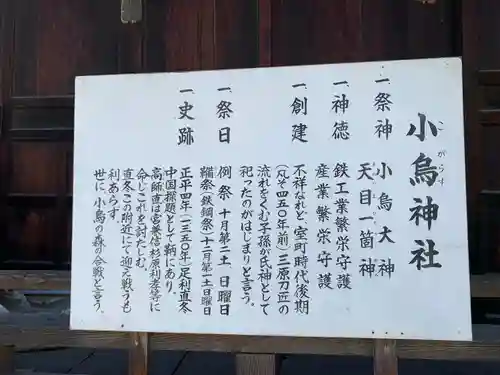 小烏神社
こがらす
一祭神 小烏大神
天目一箇神
一神徳 鉄工業繁栄守護
産業繁栄守護
一創建 不祥なれど、室町時代後期
(凡そ四五〇年前)三原刀匠の
流れをくむ子孫が氏神として
祀ったのがはじまりと言う。
一祭日 例祭 十月第二土、日曜日
鞴祭(鉄鋼祭)十二月第一土日曜日
一史跡 正平四年(一三五〇年)足利直冬
中国探題として鞆にあり、
高師直は宮兼信杉原利孝等に
命じこれを討たしむ。
直冬この附近にて迎え戦うも
利あらず。
世に、小烏の森の合戦と言う。